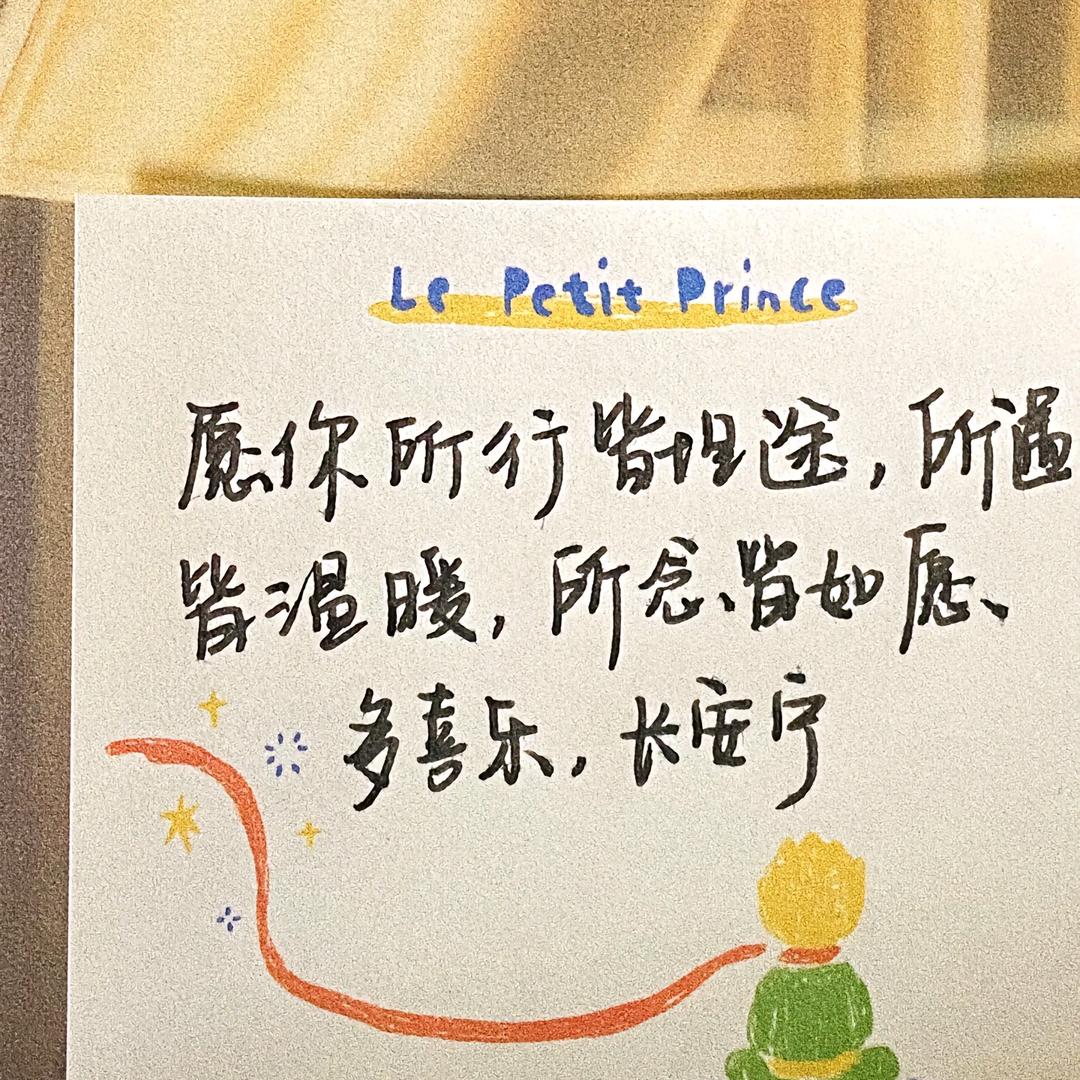 Le Petit Prince
愿你所行皆坦途,所遇
皆温暖,所念皆如愿、
多喜乐,长安宁